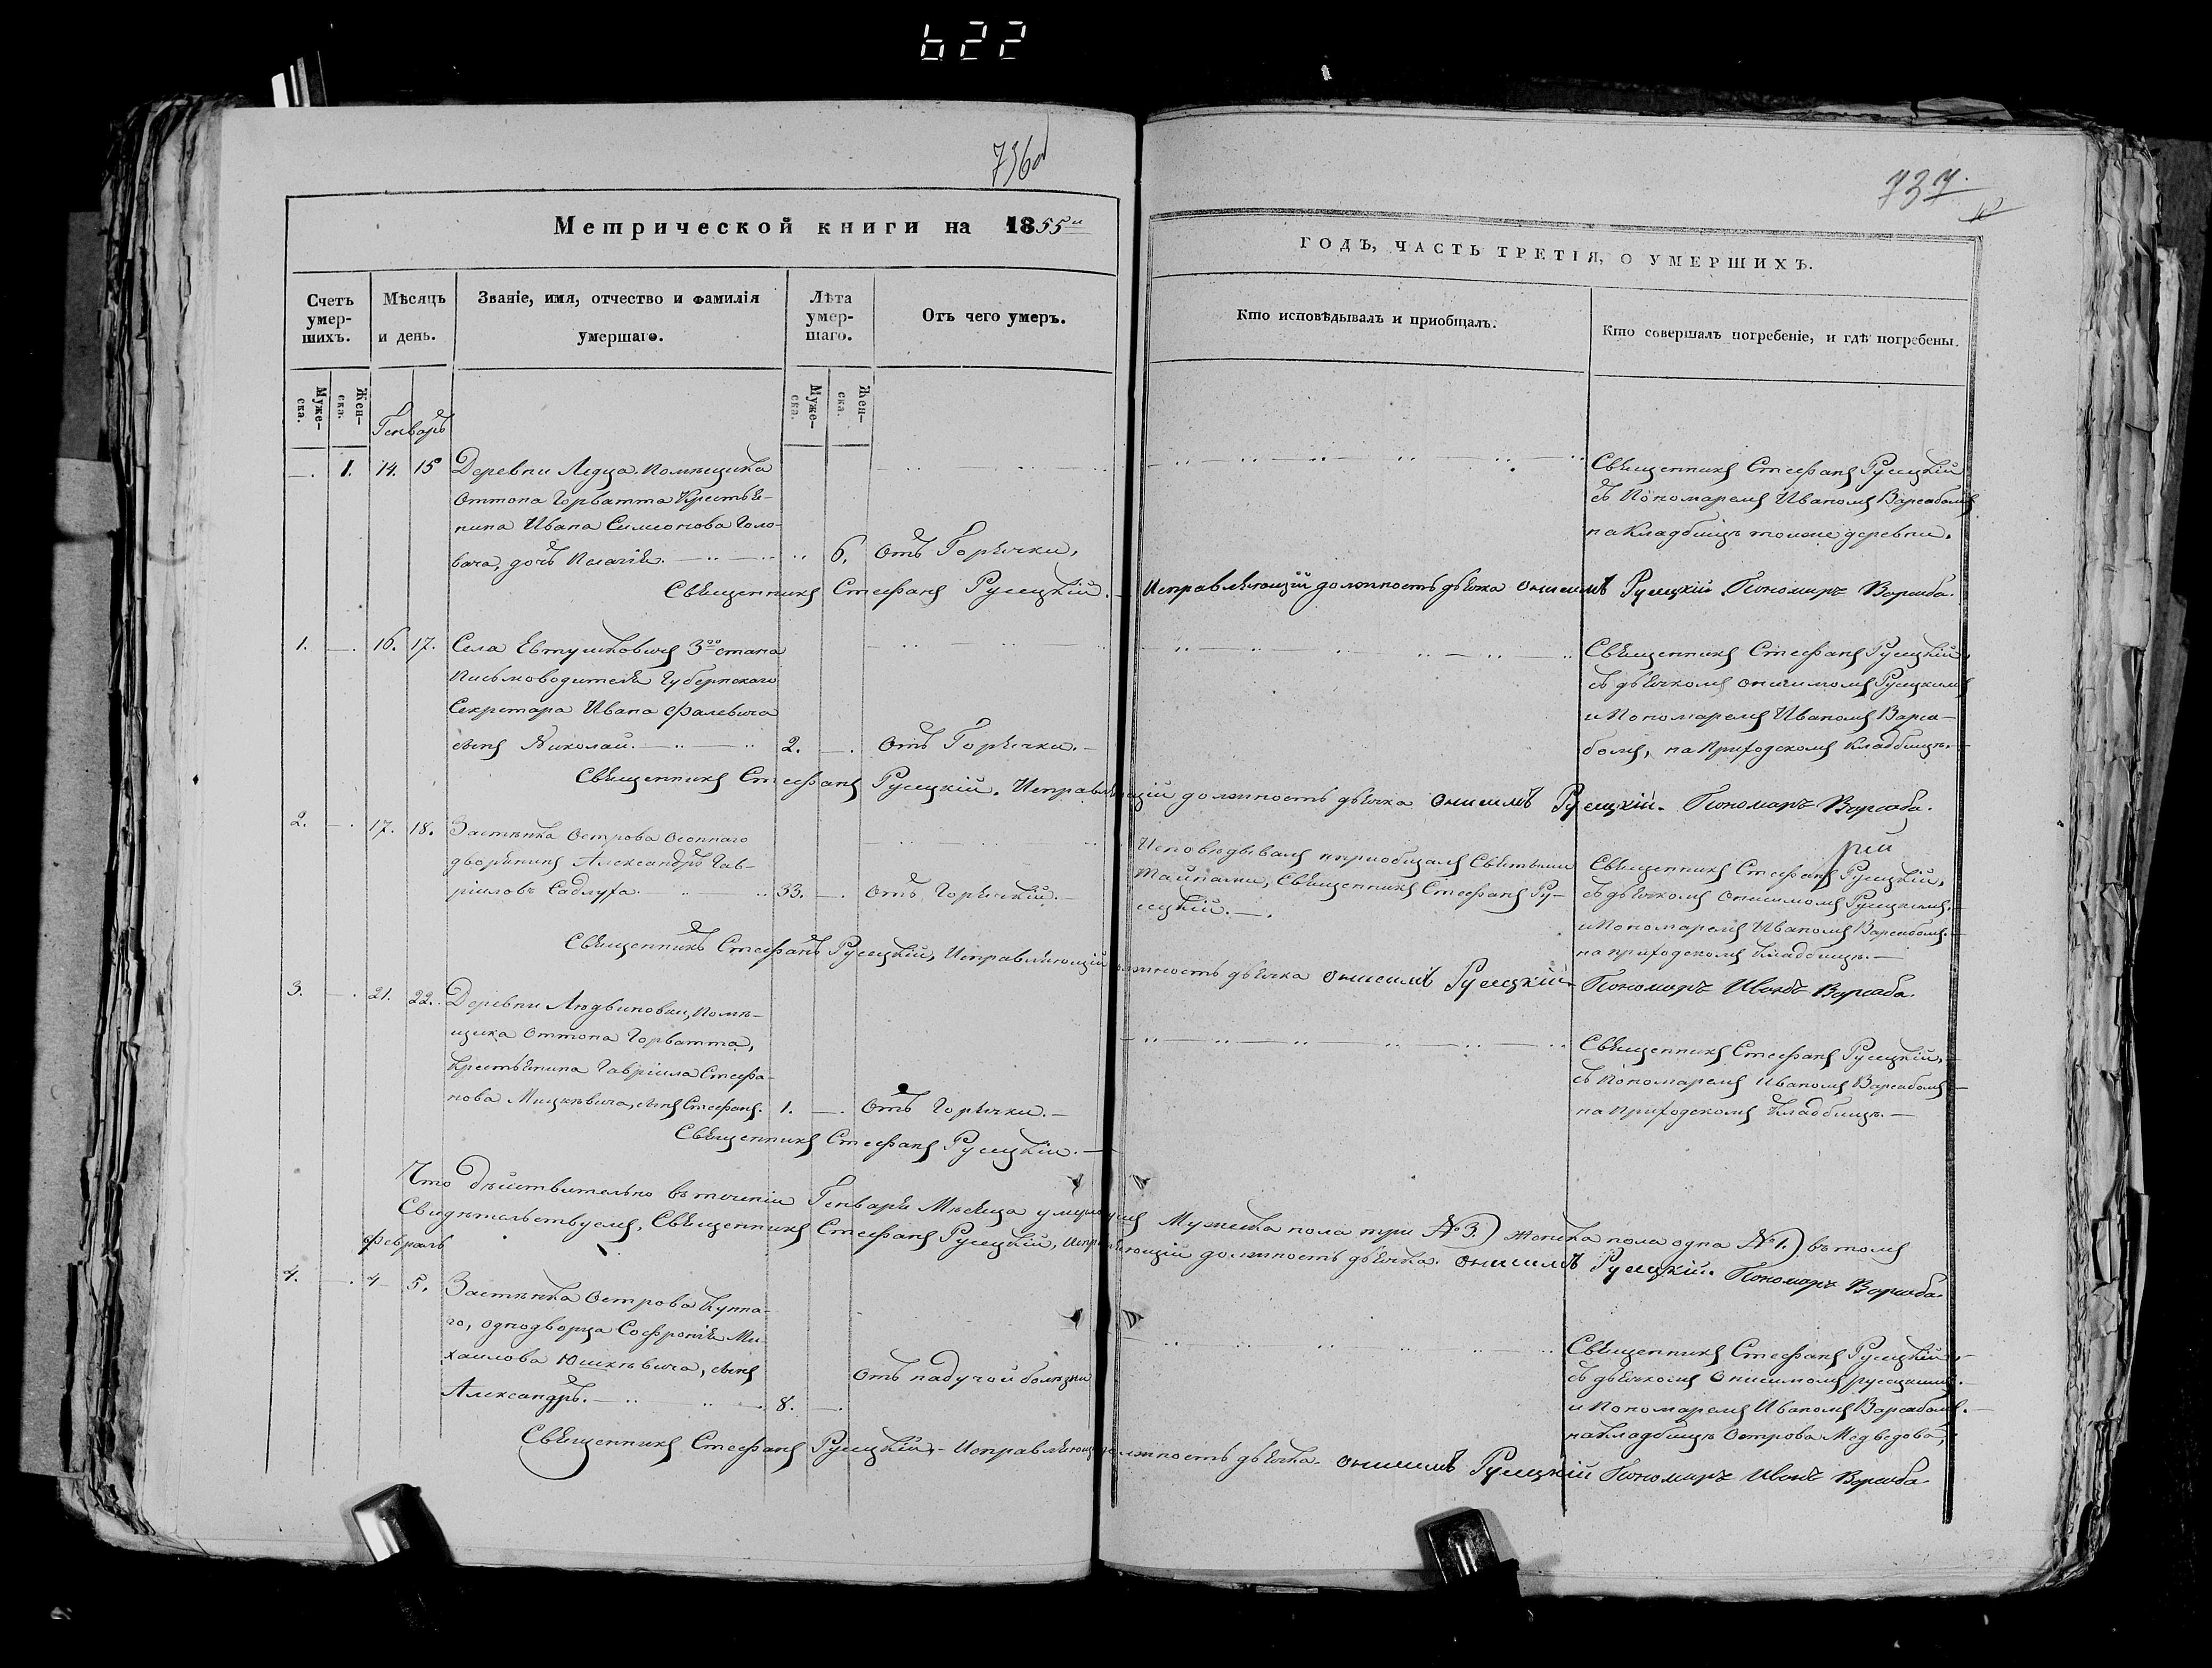 622
736об
737.
Метрической книги на 1855й
ГОДЪ, ЧАСТЬ ТРЕТІЯ, О УМЕРШИХЪ.
Счетъ умер-шихъ.
Мѣсяцъ и день.
Званіе, имя, отчество и фамилія умершаго.
Лѣта умер-шаго.
Отъ чего умеръ.
Кто исповѣдывалъ и пріобщалъ.
Кто совершалъ погребеніе, и гдѣ погребены.
Муже-ска.
Жен-ска.
Муже-ска.
Жен-ска.
Генварь
1. 14. 15 Деревни Ледца помѣщика
Оттона Горватта Крестья-
нина Ивана Симеонова Голо-
вача, дочь Пелагія. 6. Отъ Горячки.
Священникъ Стефанъ Русецкій
съ Пономаремъ Иваномъ Варсабомъ
на Кладбищѣ тойже деревни.
Священникъ Стефанъ Русецкій. Исправляющій должность дьячка Онисимъ Русецкій Пономарь Варсаба.
1. 16. 17. Села Евтушковичъ 3го стана
Письмоводителя Губернскаго
Секретара Ивана Фалевича
сынъ Николай. 2. Отъ Горячки.
Священникъ Стефанъ Русецкій,
съ дьячкомъ Онисимомъ Русецкимъ
и Пономаремъ Иваномъ Варса-
бомъ, на Приходскомъ Кладбищѣ.
Священникъ Стефанъ Русецкій. Исправляющій должность дьячка Онисимъ Русецкій. Пономарь Варсаба.
2. 17. 18. Застѣнка Острова Осопнаго
дворянинъ Александръ Гав-
ріиловъ Садлуха. 33. Отъ Горячкій.
Исповѣдывалъ и пріобщалъ Святыми
Тайнами, Священникъ Стефанъ Ру-
сецкій.
Священникъ Стефанъ Русецкій,
съ дьячкомъ Онисимомъ Русецкимъ,
и Пономаремъ Иваномъ Варсабомъ.
на приходскомъ Кладбищѣ.
Священникъ Стефанъ Русецкій, Исправляющій должность дьячка Онисимъ Русецкій Пономарь Иванъ Варсаба.
3. 21. 22. Деревни Людвиновки, Помѣ-
щика Оттона Горватта,
Крестьянина Гавріила Стефа-
нова Мицкѣвича, сынъ Стефанъ. 1. Отъ Горячки.
Священникъ Стефанъ Русецкій,
съ Пономаремъ Иваномъ Варсабомъ
на Приходскомъ Кладбищѣ.
Священникъ Стефанъ Русецкій.
Что дѣйствительно въ теченіи Генваря Мѣсяца умерло Мужеска пола три №3.) женска пола одна №1.) въ томъ
Свидѣтельствуемъ, Священникъ Стефанъ Русецкій, Исправляющій должность дьячка. Онисимъ Русецкій. Пономарь Варсаба.
Февраль
4. 4 5. Застѣнка Острова
го, однодворца Софронія Ми-
хаилова Юшкѣвича, сынъ
Александръ. 8. Отъ падучой болѣзни
Священникъ Стефанъ Русецкій,
съ дьячкомъ Онисимомъ русецкимъ.
и Пономаремъ Иваномъ Варсабомъ.
на Кладбищѣ Острова Медведова,
Священникъ Стефанъ Русецкій, Исправляющій должность дьячка. Онисимъ Русецкій Пономарь Иванъ Варсаба.